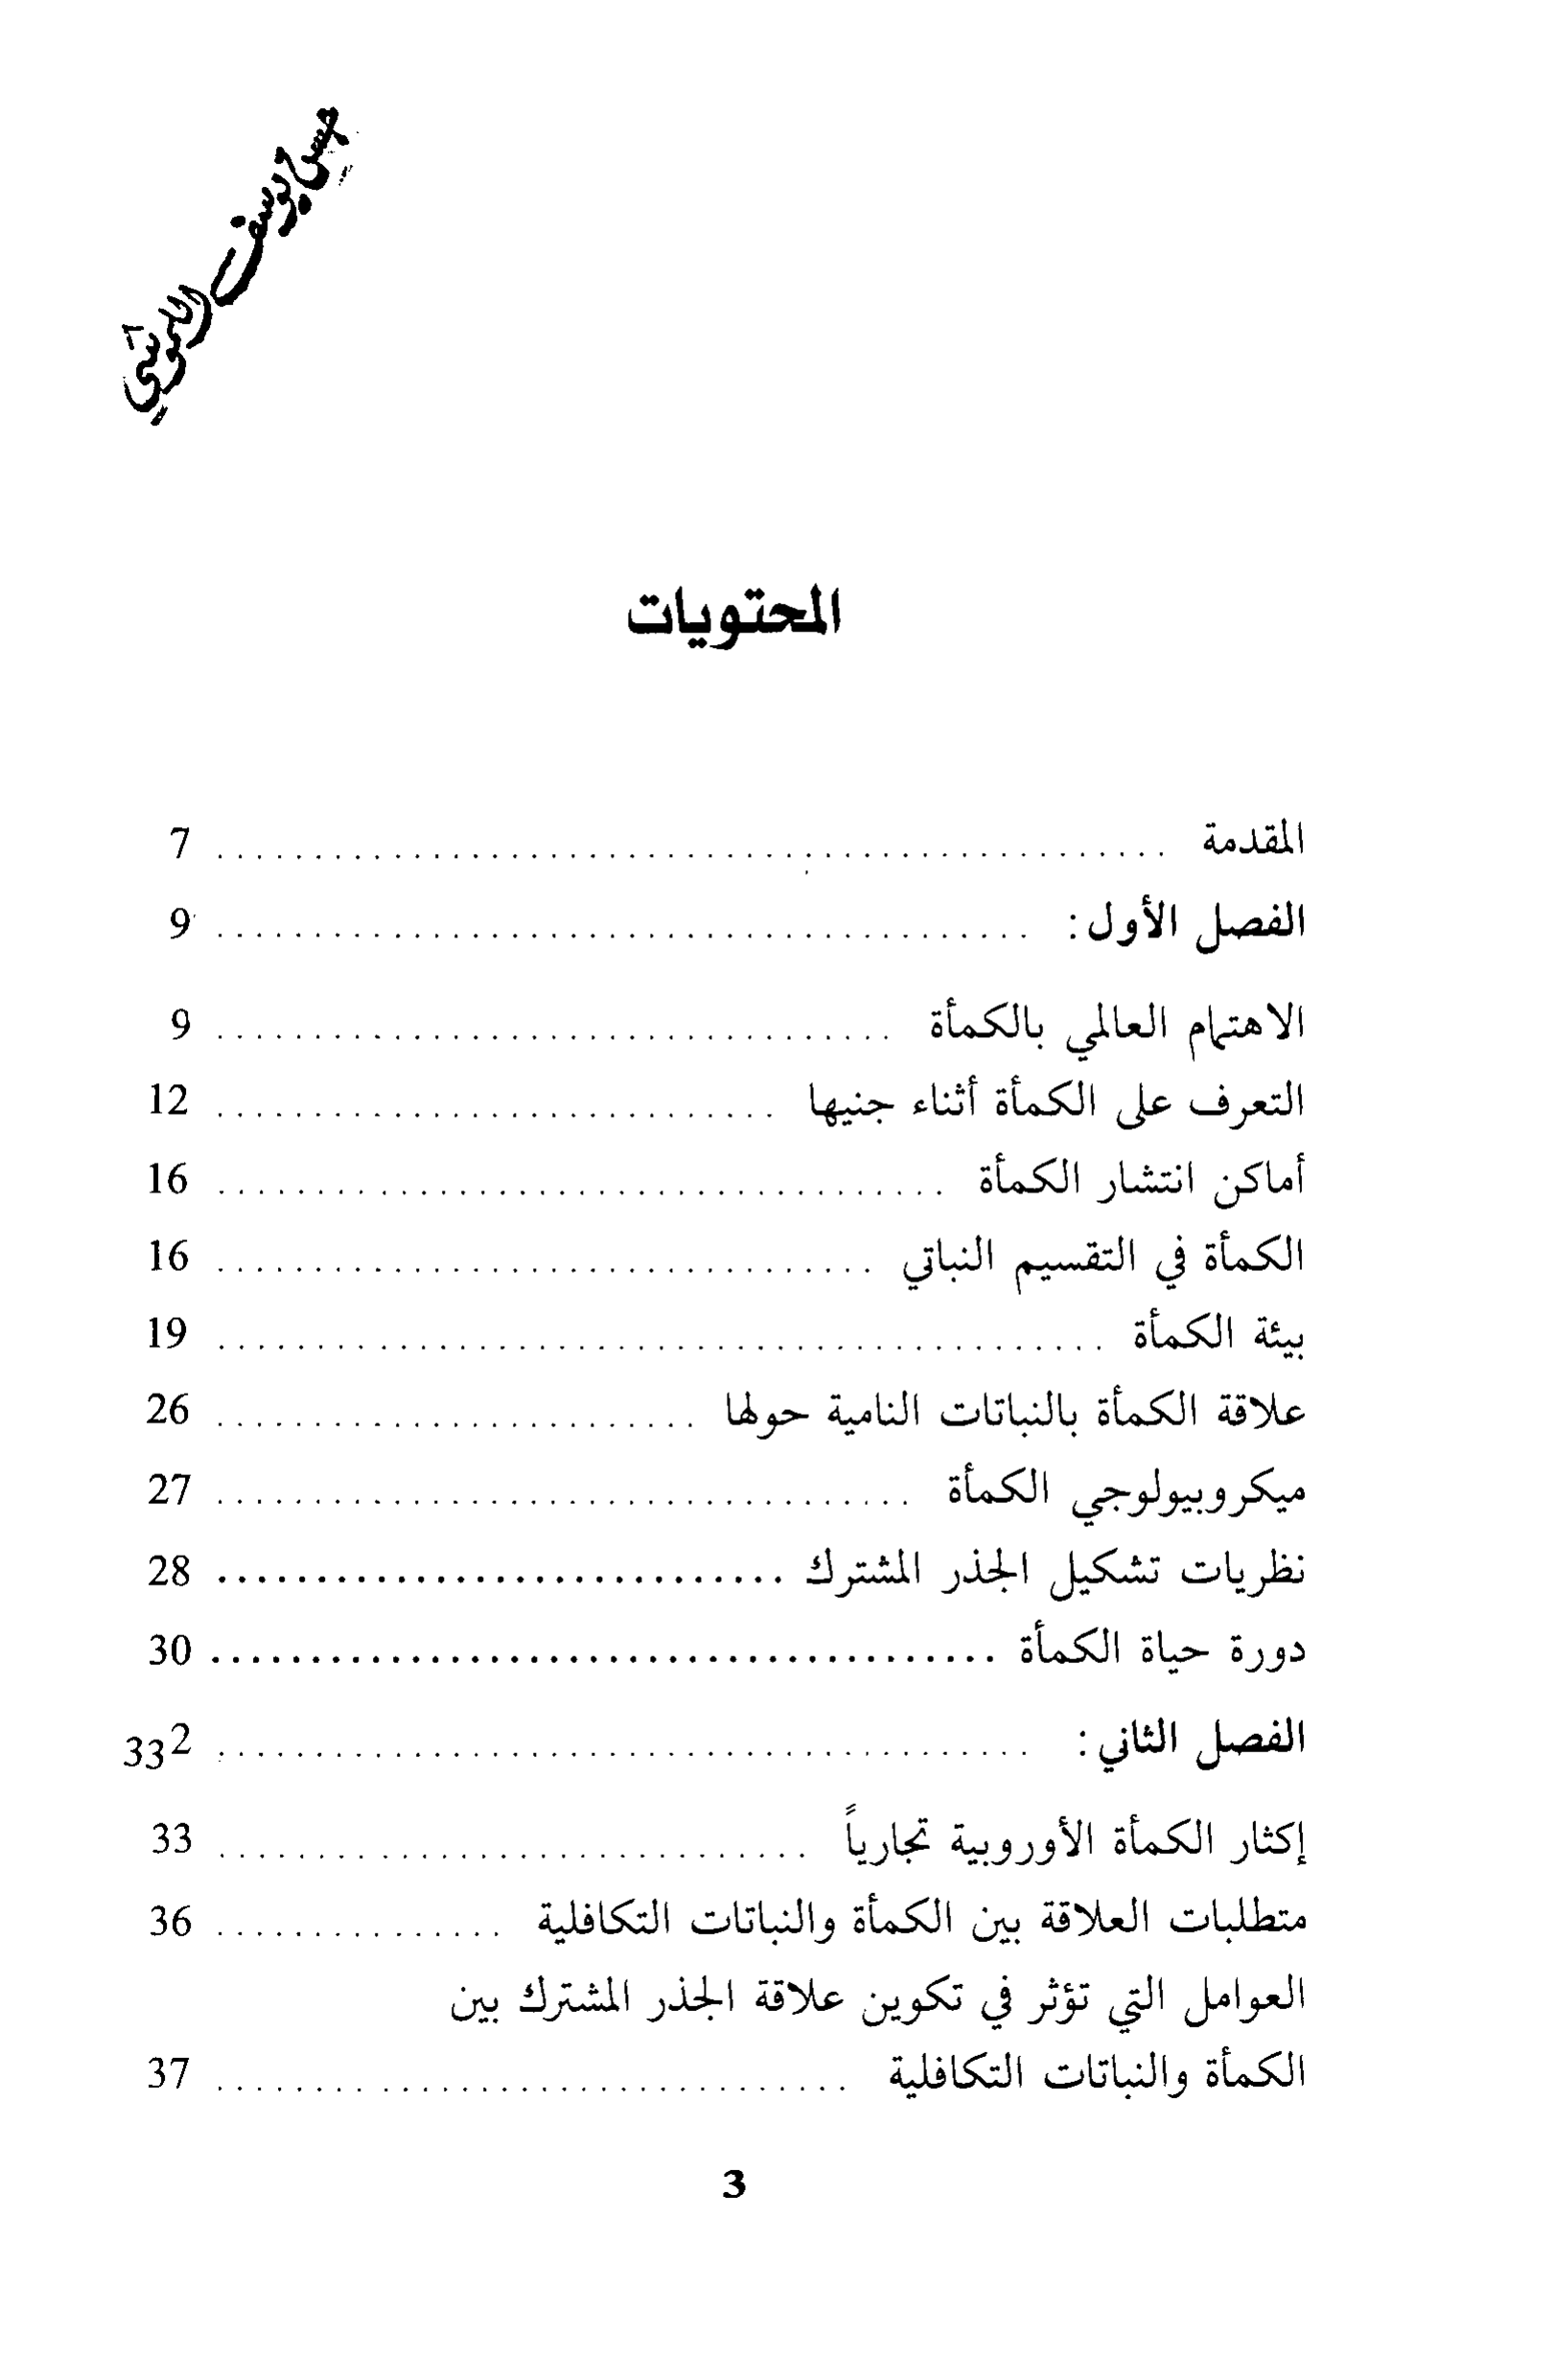 المحتويات
المقدمة ................................................ 7
الفصل الأول : ......................................... 9
الاهتمام العالمي بالكمأة .................................. 9
التعرف على الكمأة أثناء جنيها ............................. 12
أماكن انتشار الكمأة ..................................... 16
الكمأة في التقسيم النباتي ................................. 16
بيئة الكمأة ............................................. 19
علاقة الكمأة بالنباتات النامية حولها ......................... 26
ميكروبيولوجي الكمأة ................................... 27
نظريات تشكيل الجذر المشترك ............................. 28
دورة حياة الكمأة ........................................ 30
الفصل الثاني : ......................................... 332
إكثار الكمأة الأوروبية تجارياً .............................. 33
متطلبات العلاقة بين الكمأة والنباتات التكافلية ............... 36
العوامل التي تؤثر في تكوين علاقة الجذر المشترك بين
الكمأة والنباتات التكافلية ................................ 37
3